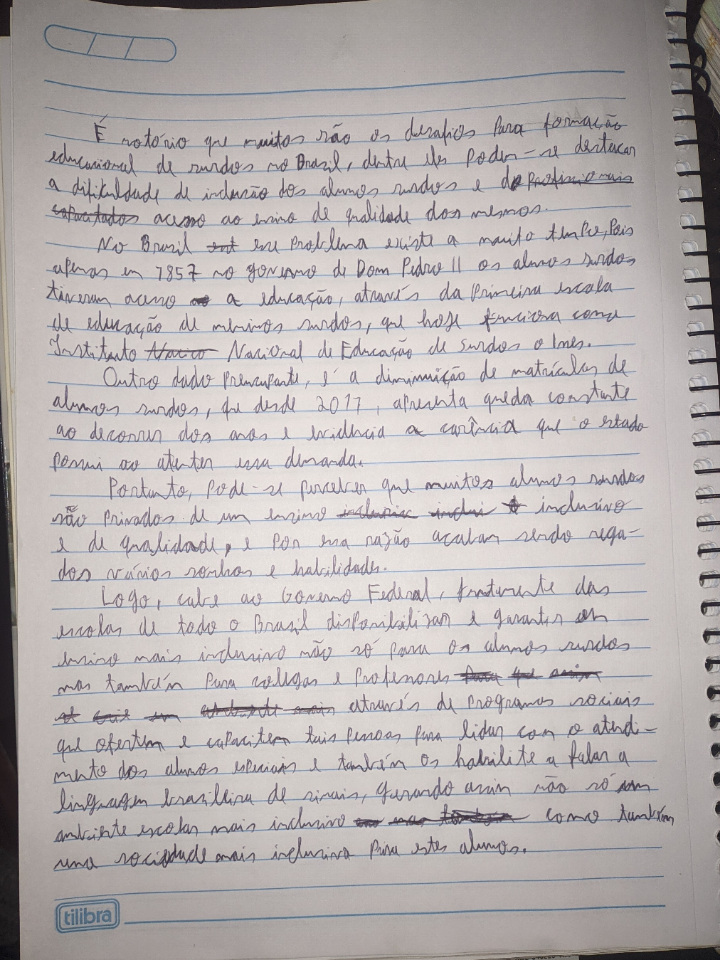 É notório que muitos são os desafios para formação
educacional de surdos no Brasil, dentre eles podem-se destacar
a dificuldade de inclusão dos alumos surdos e do profissio mais
capacitados acesso ao ensino de qualidade dos mesmos.
No Brasil ent esse problema existe a muito tempo, pois
apenas em 1857 no governo de Dom Pedro II os alunos surdos
tiveram acesso ao a educação, através da primeira escola
de educação de meninos surdos, que hoje funciona como
Instituto Nacio Nacional de Educação de Surdos o Ines.
Outro dado preucupante, é a diminuição de matrículas de
alunos surdos, que desde 2017, apresenta queda constante
ao decorrer dos anos e evidência a carência que o estado
possui ao atenter essa demanda.
Portanto, pode-se perceber que muitos alunos surdos
são privados de um ensino inclui inclusivo
e de qualidade, e por essa razão acabam sendo nega-
dos vários sonhos e habilidades.
Logo, cabe ao Governo Federal, juntamente das
escolas de todo o Brasil disponibilizar e garantir um
ensino mais inclusivo não só para os alunos surdos
mas também para colegas e professores para que assim
se crie um ambiente mais através de programas sociais
que ofertem e capacitem tais pessoas para lidar com o atendi-
mento dos alunos especiais e também os habilite a falar a
linguagem brasileira de sinais, gerando assim não só um
ambiente escolar mais inclusivo mas também como também
uma sociedade mais inclusiva para estes alunos.
tilibra